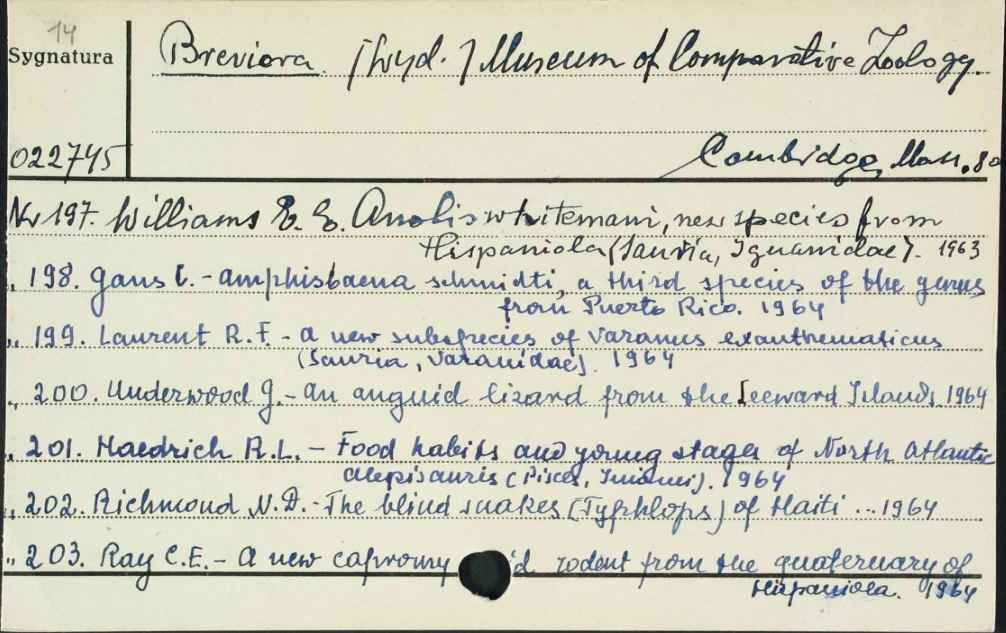 14
Sygnatura
Breviora. (wyd.) Museum of Comparative Zoology.
022745
Cambridge, Mass. 80
Nr 197. Williams E. E. Anolis whitemani, new species from
Hispaniola (Sauria, Iguanidae). 1963
„ 198. Gans C. - Amphisbaena schmidti, a third species of the genus
from Puerto Rico. 1964
„ 199. Laurent R.F. - A new subspecies of Varanus exanthematicus
(Sauria, Varanidae). 1964
„ 200. Underwood G. - An anguid lizard from the Leeward Islands. 1964
„ 201. Haedrich R.L. - Food habits and young stages of North Atlantic
Alepisauris (Pisces, Iniomi). 1964
„ 202. Richmond N.D. - The blind snakes (Typhlops) of Haiti ... 1964
„ 203. Ray C.E. - A new capromy 'd rodent from the quaternary of
Hispaniola. 1964